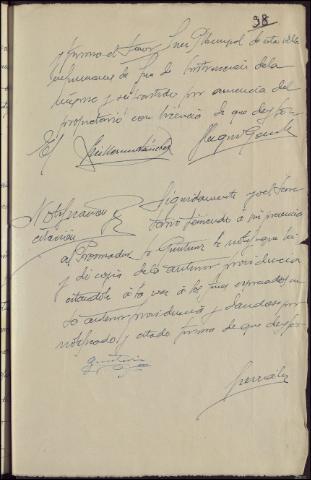 38
y firma el Señor Juez Municipal de esta villa
en funciones de Juez de Instrucción de la
misma y su partido por ausencia del
propietario con licencia de que doy fe
El Guillermo Sánchez
Notificación y Seguidamente yo el Secre
citación tario teniendo a mi presencia
al Procurador le notifiqué leí
y di copia de la anterior providencia
citándole a la vez a los fines expresados en
la anterior providencia y dándose por
notificado y citado firma de que doy fe
González